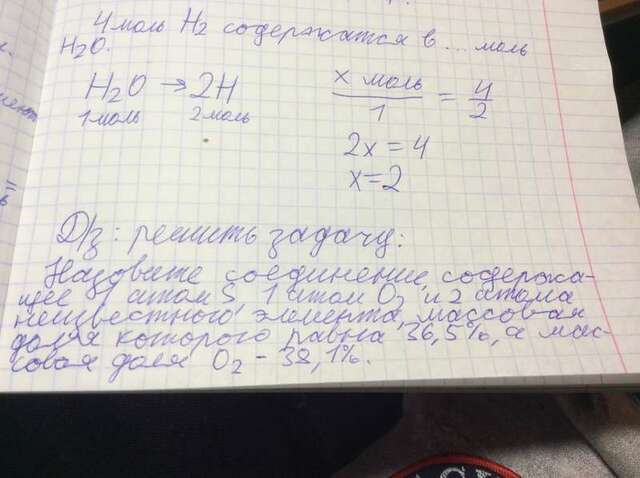 4 моль H2 содержатся в ... моль
H2O.
H2O → 2H
1 моль 2 моль
x моль / 1 = 4 / 2
2x = 4
x = 2
Д/з: решить задачу:
Назовите соединение, содержа-
щее 1 атом S 1 атом O2 и 2 атома
неизвестного элемента, массовая
доля которого равна 36,5%, а мас-
совая доля O2 - 38,1%.